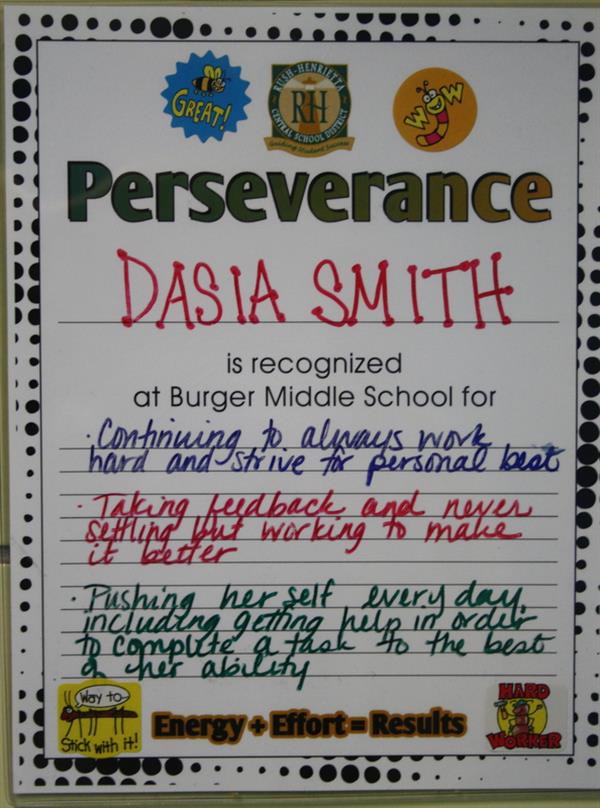 GREAT!
RUSH-HENRIETTA
RH
CENTRAL SCHOOL DISTRICT
Guiding Student Success
WOW
Perseverance
DASIA SMITH
is recognized
at Burger Middle School for
· Continuing to always work
hard and strive for personal best
· Taking feedback and never
settling but working to make
it better
· Pushing her self every day,
including getting help in order
to complete a task to the best
of her ability
Way to
Stick with it!
Energy + Effort = Results
HARD
WORKER